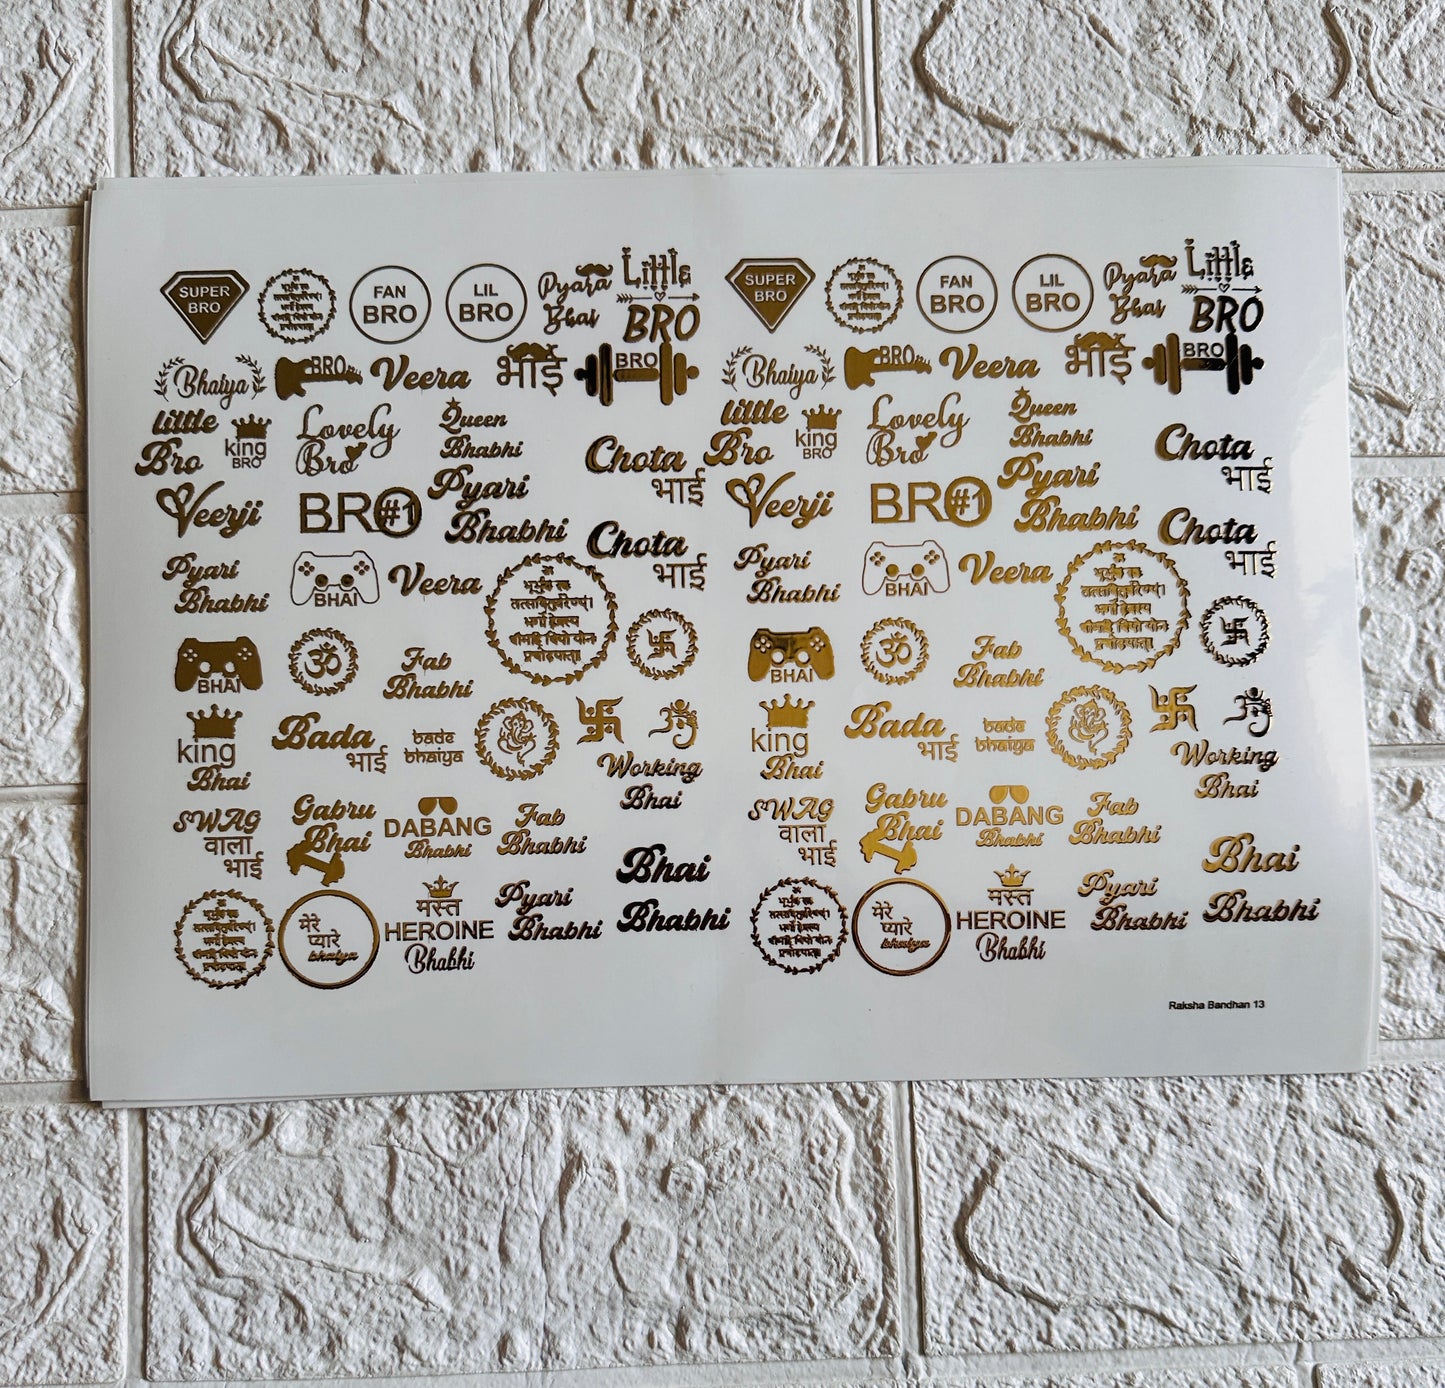 SUPER
BRO
FAN
BRO
LIL
BRO
Pyara
Bhai
Little
BRO
SUPER
BRO
FAN
BRO
LIL
BRO
Pyara
Bhai
Little
BRO
Bhaiya
BRO
Veera
भाई
BRO
Bhaiya
BRO
Veera
भाई
BRO
little
Bro
king
BRO
Lovely
Bro
Queen
Bhabhi
Chota
भाई
little
Bro
king
BRO
Lovely
Bro
Queen
Bhabhi
Chota
भाई
Veerji
BRO #1
Pyari
Bhabhi
Chota
भाई
Veerji
BRO #1
Pyari
Bhabhi
Chota
भाई
Pyari
Bhabhi
BHAI
Veera
Pyari
Bhabhi
BHAI
Veera
BHAI
ॐ
Fab
Bhabhi
BHAI
ॐ
Fab
Bhabhi
king
Bhai
Bada
भाई
bade
bhaiya
Working
Bhai
king
Bhai
Bada
भाई
bade
bhaiya
Working
Bhai
SWAG
वाला
भाई
Gabru
Bhai
DABANG
Bhabhi
Fab
Bhabhi
Bhai
SWAG
वाला
भाई
Gabru
Bhai
DABANG
Bhabhi
Fab
Bhabhi
Bhai
मेरे
प्यारे
bhaiya
मस्त
HEROINE
Bhabhi
Pyari
Bhabhi
Bhabhi
मेरे
प्यारे
bhaiya
मस्त
HEROINE
Bhabhi
Pyari
Bhabhi
Bhabhi
Raksha Bandhan 13